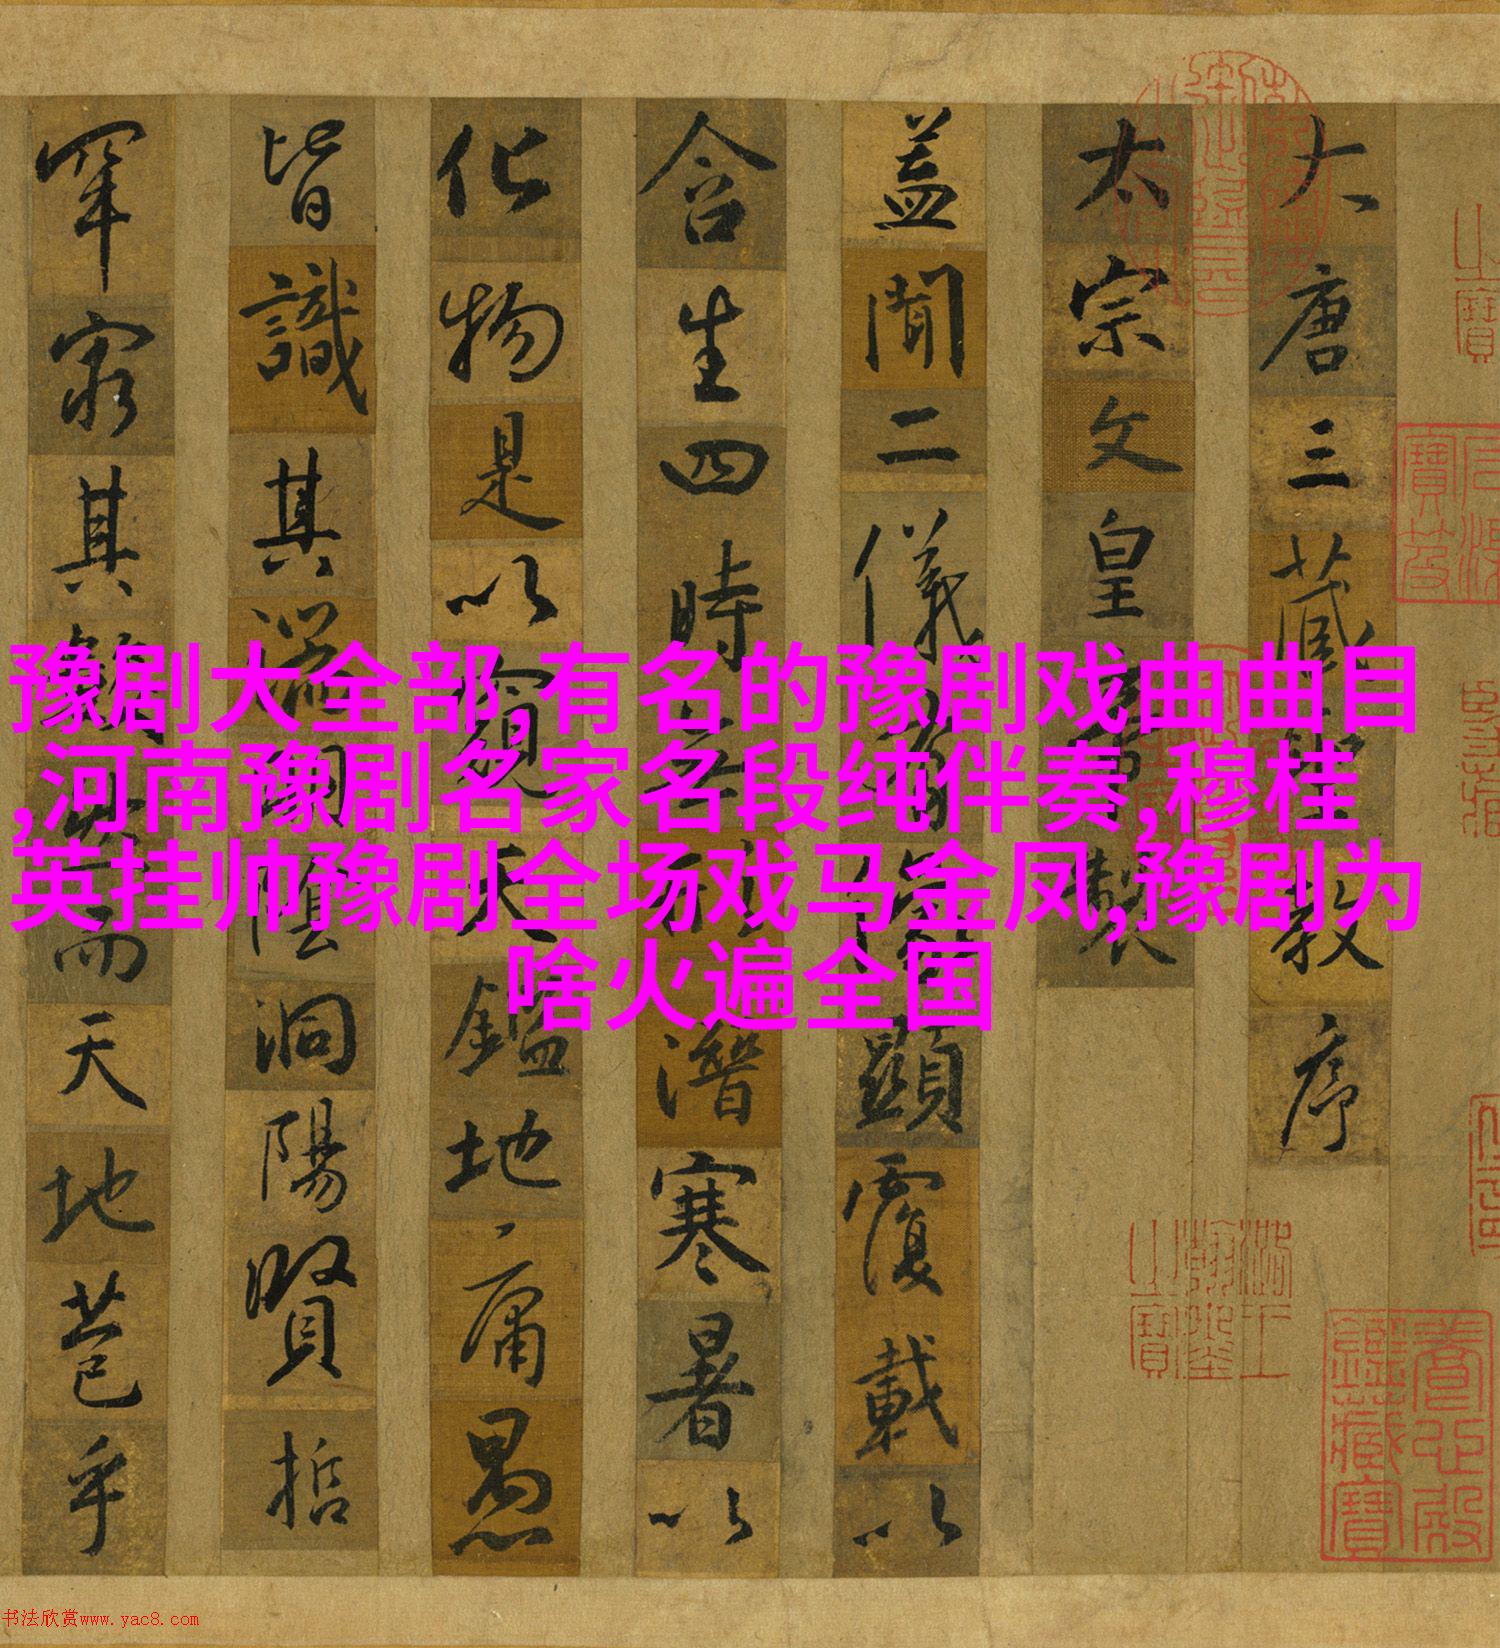 大唐三藏聖教序
太宗文皇帝製
蓋聞二儀有像顯覆載以
含生四時無形潛寒暑以
化物是以窺天鑑地庸愚
皆識其端明陰洞陽賢哲
罕窮其數然而天地苞乎
豫剧大全部,有名的豫剧戏曲曲目
,河南豫剧名家名段纯伴奏,穆桂
英挂帅豫剧全场戏马金凤,豫剧为
啥火遍全国
石渠
寶笈
養心殿
鑑藏寶
书法欣赏www.yac8.com